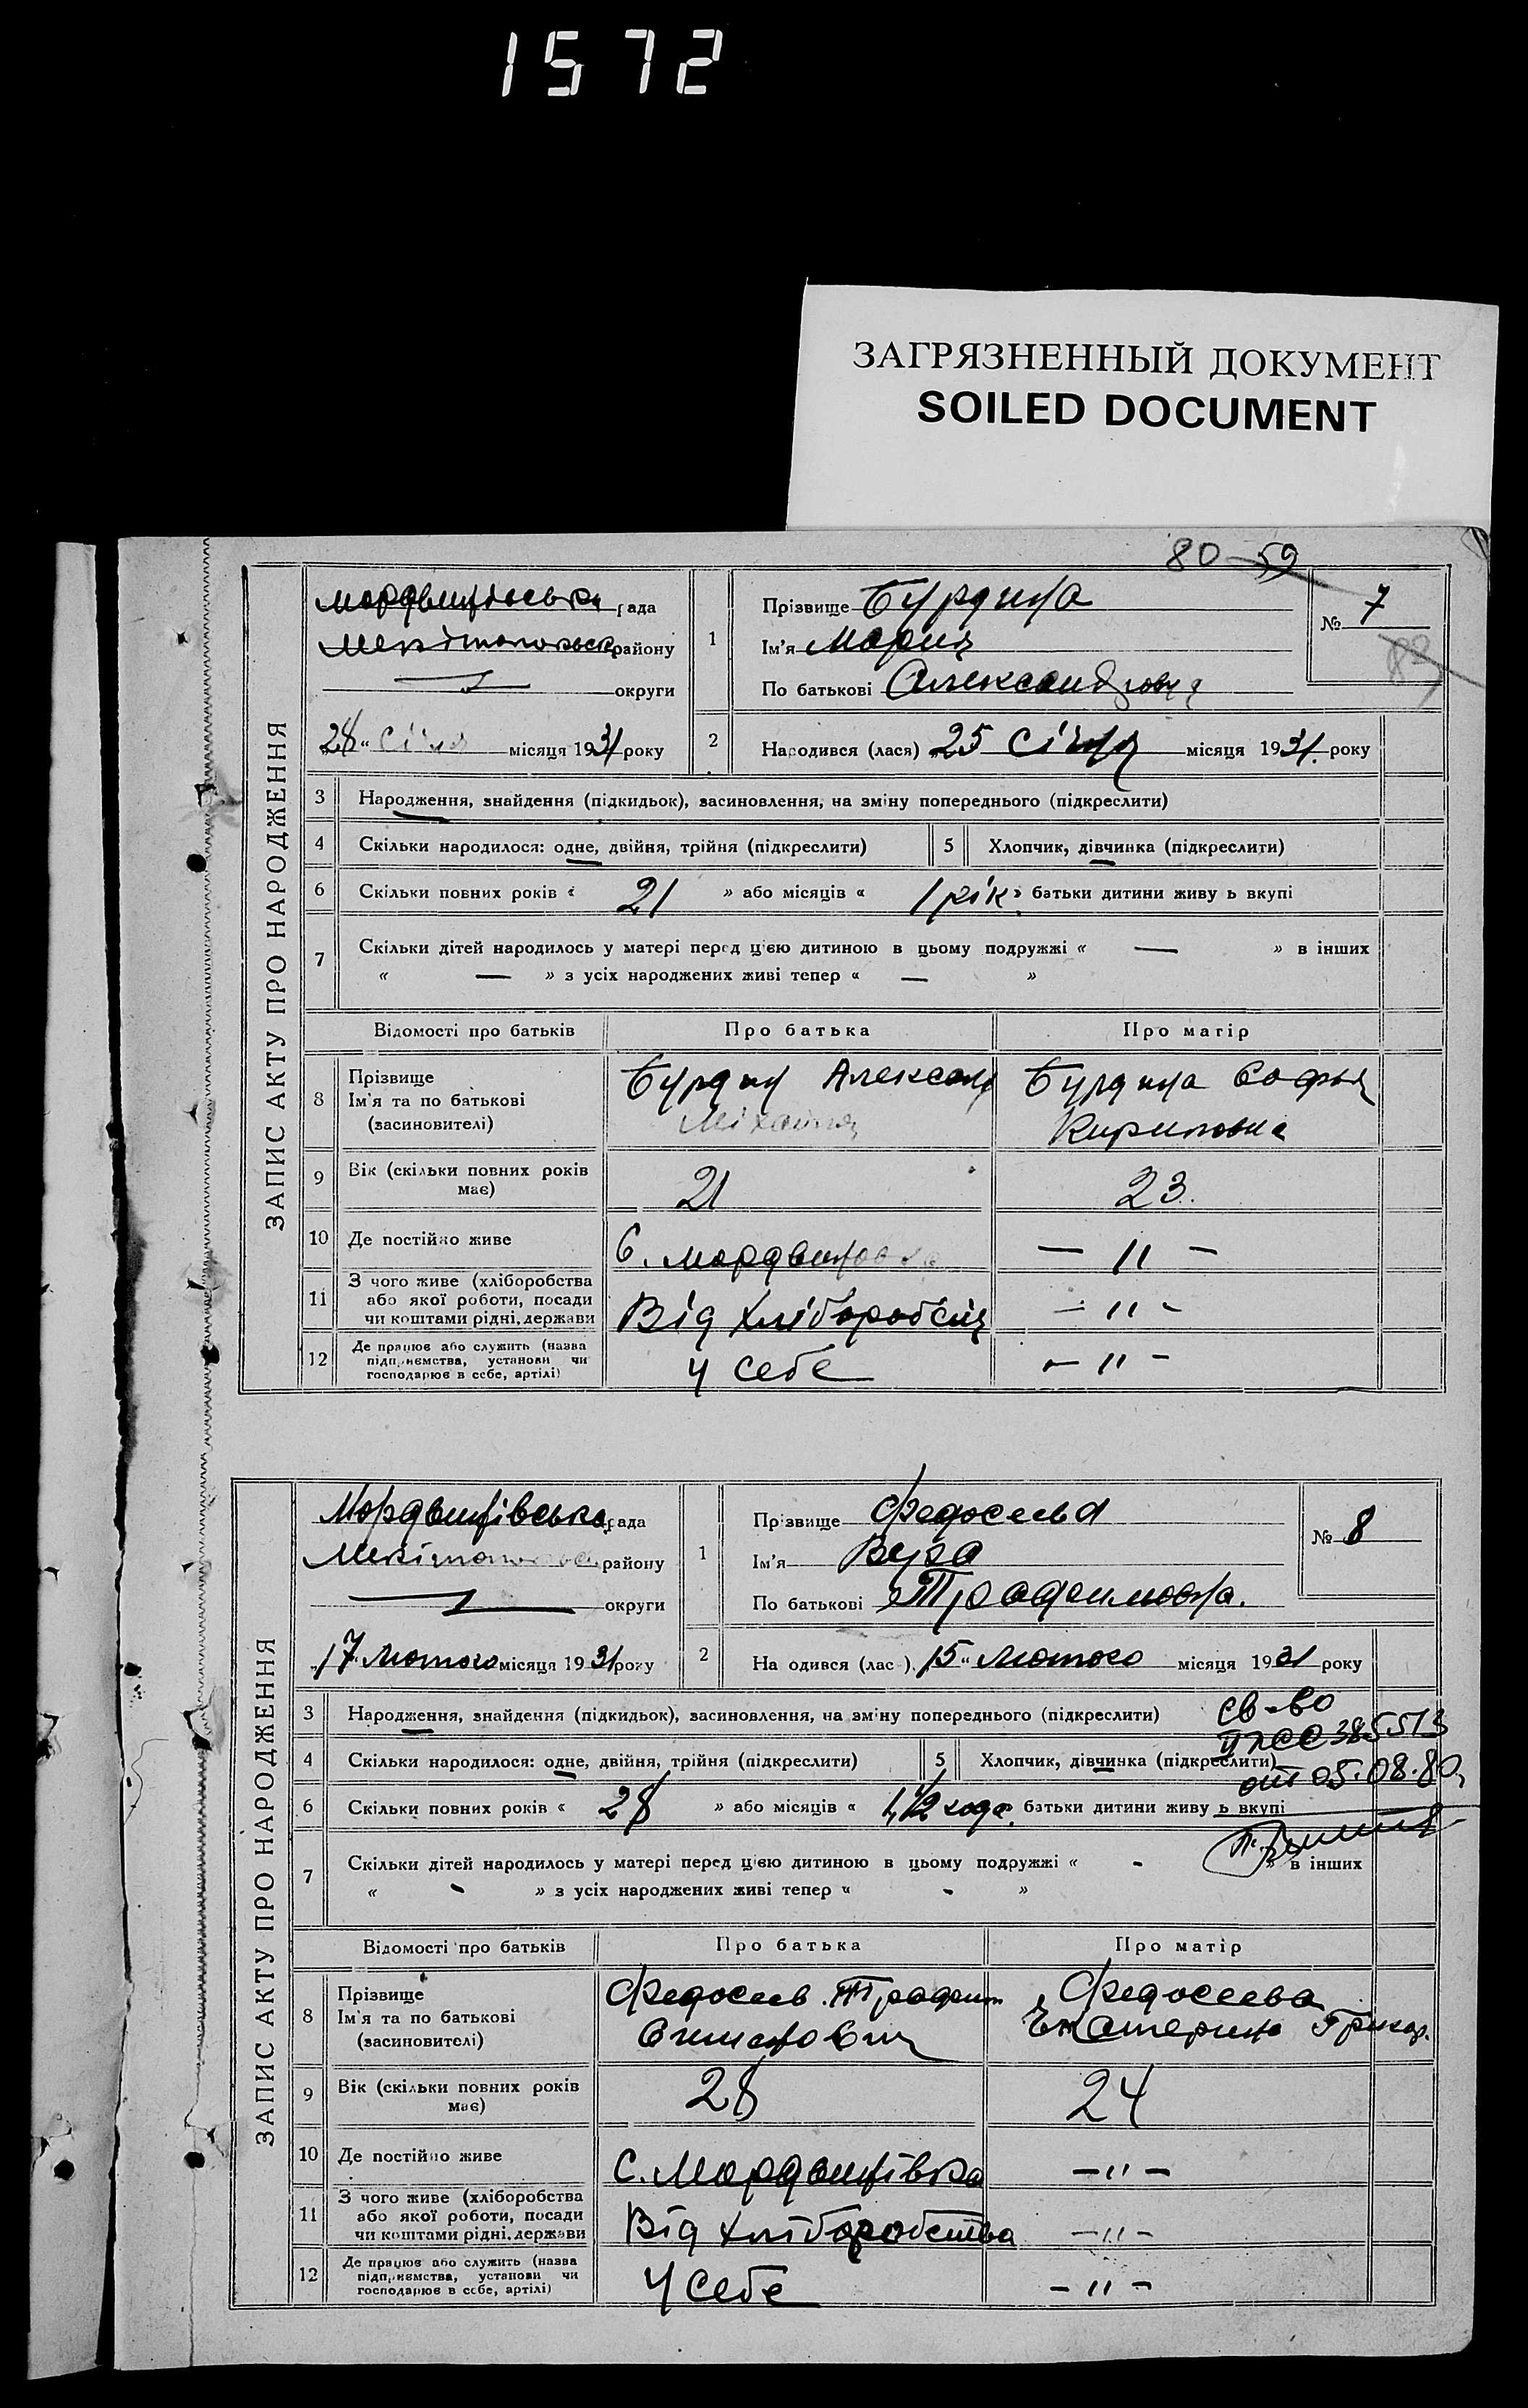 1572
ЗАГРЯЗНЕННЫЙ ДОКУМЕНТ
SOILED DOCUMENT
80 59
ЗАПИС АКТУ ПРО НАРОДЖЕННЯ
Мордвинівська рада
Мелітопольськ району
округи
28 січня місяця 1931 року
1
Прізвище Бурдина
Ім'я Мария
По батькові Александровна
№ 7
83
2
Народився (лася) 25 січня місяця 1931. року
3 Народження, знайдення (підкидьок), засиновлення, на зміну попереднього (підкреслити)
4 Скільки народилося: одне, двійня, трійня (підкреслити) 5 Хлопчик, дівчинка (підкреслити)
6 Скільки повних років « 21 » або місяців « 1 рік » батьки дитини живу ь вкупі
7 Скільки дітей народилось у матері перед цією дитиною в цьому подружжі « — » в інших
« — » з усіх народжених живі тепер « — »
Відомості про батьків Про батька Про матір
8 Прізвище
Ім'я та по батькові
(засиновителі)
Бурдин Александ
Міхайло
Бурдина Софья
Кириловна
9 Вік (скільки повних років має) 21 23.
10 Де постійно живе С. Мордвиновка — 〃 —
11 З чого живе (хліборобства
або якої роботи, посади
чи коштами рідні, держави
Від хліборобсів — 〃 —
12 Де працює або служить (назва
підприємства, установи чи
господарює в себе, артілі)
У себе — 〃 —
ЗАПИС АКТУ ПРО НАРОДЖЕННЯ
Мордвинівська рада
Мелітопольськ району
округи
17 лютого місяця 1931 року
1
Прізвище Федосеева
Ім'я Вера
По батькові Трофимовна.
№ 8
2
На одився (лас ) 15 лютого місяця 1931 року
3 Народження, знайдення (підкидьок), засиновлення, на зміну попереднього (підкреслити)
св-во
385513
от 05.08.80
4 Скільки народилося: одне, двійня, трійня (підкреслити) 5 Хлопчик, дівчинка (підкреслити)
6 Скільки повних років « 28 » або місяців « 1 1/2 года » батьки дитини живу ь вкупі
7 Скільки дітей народилось у матері перед цією дитиною в цьому подружжі « - » в інших
« - » з усіх народжених живі тепер « - »
Відомості про батьків Про батька Про матір
8 Прізвище
Ім'я та по батькові
(засиновителі)
Федосеев Трофим
Федосеева
Екатерина Григор.
9 Вік (скільки повних років має) 28 24
10 Де постійно живе С. Мордвинівка — 〃 —
11 З чого живе (хліборобства
або якої роботи, посади
чи коштами рідні, держави
Від хліборобства — 〃 —
12 Де працює або служить (назва
підприємства, установи чи
господарює в себе, артілі)
У себе — 〃 —